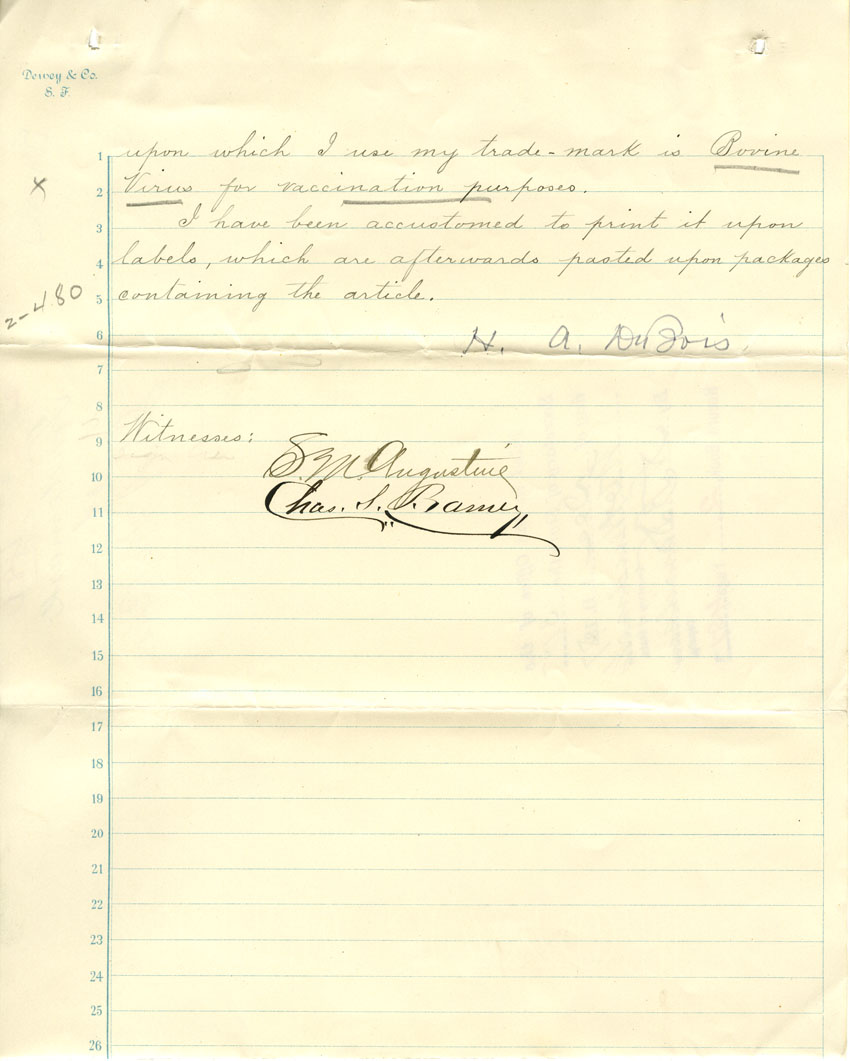 Dewey & Co.
S. F.
1 upon which I use my trade-mark is Bovine
x
2 Virus for vaccination purposes.
3 I have been accustomed to print it upon
4 labels, which are afterwards pasted upon packages
2-480
5 containing the article.
6 H. A. DuBois.
7
8
9 Witnesses:
10 S. M. Augustine
11 Chas. S. Barney
12
13
14
15
16
17
18
19
20
21
22
23
24
25
26